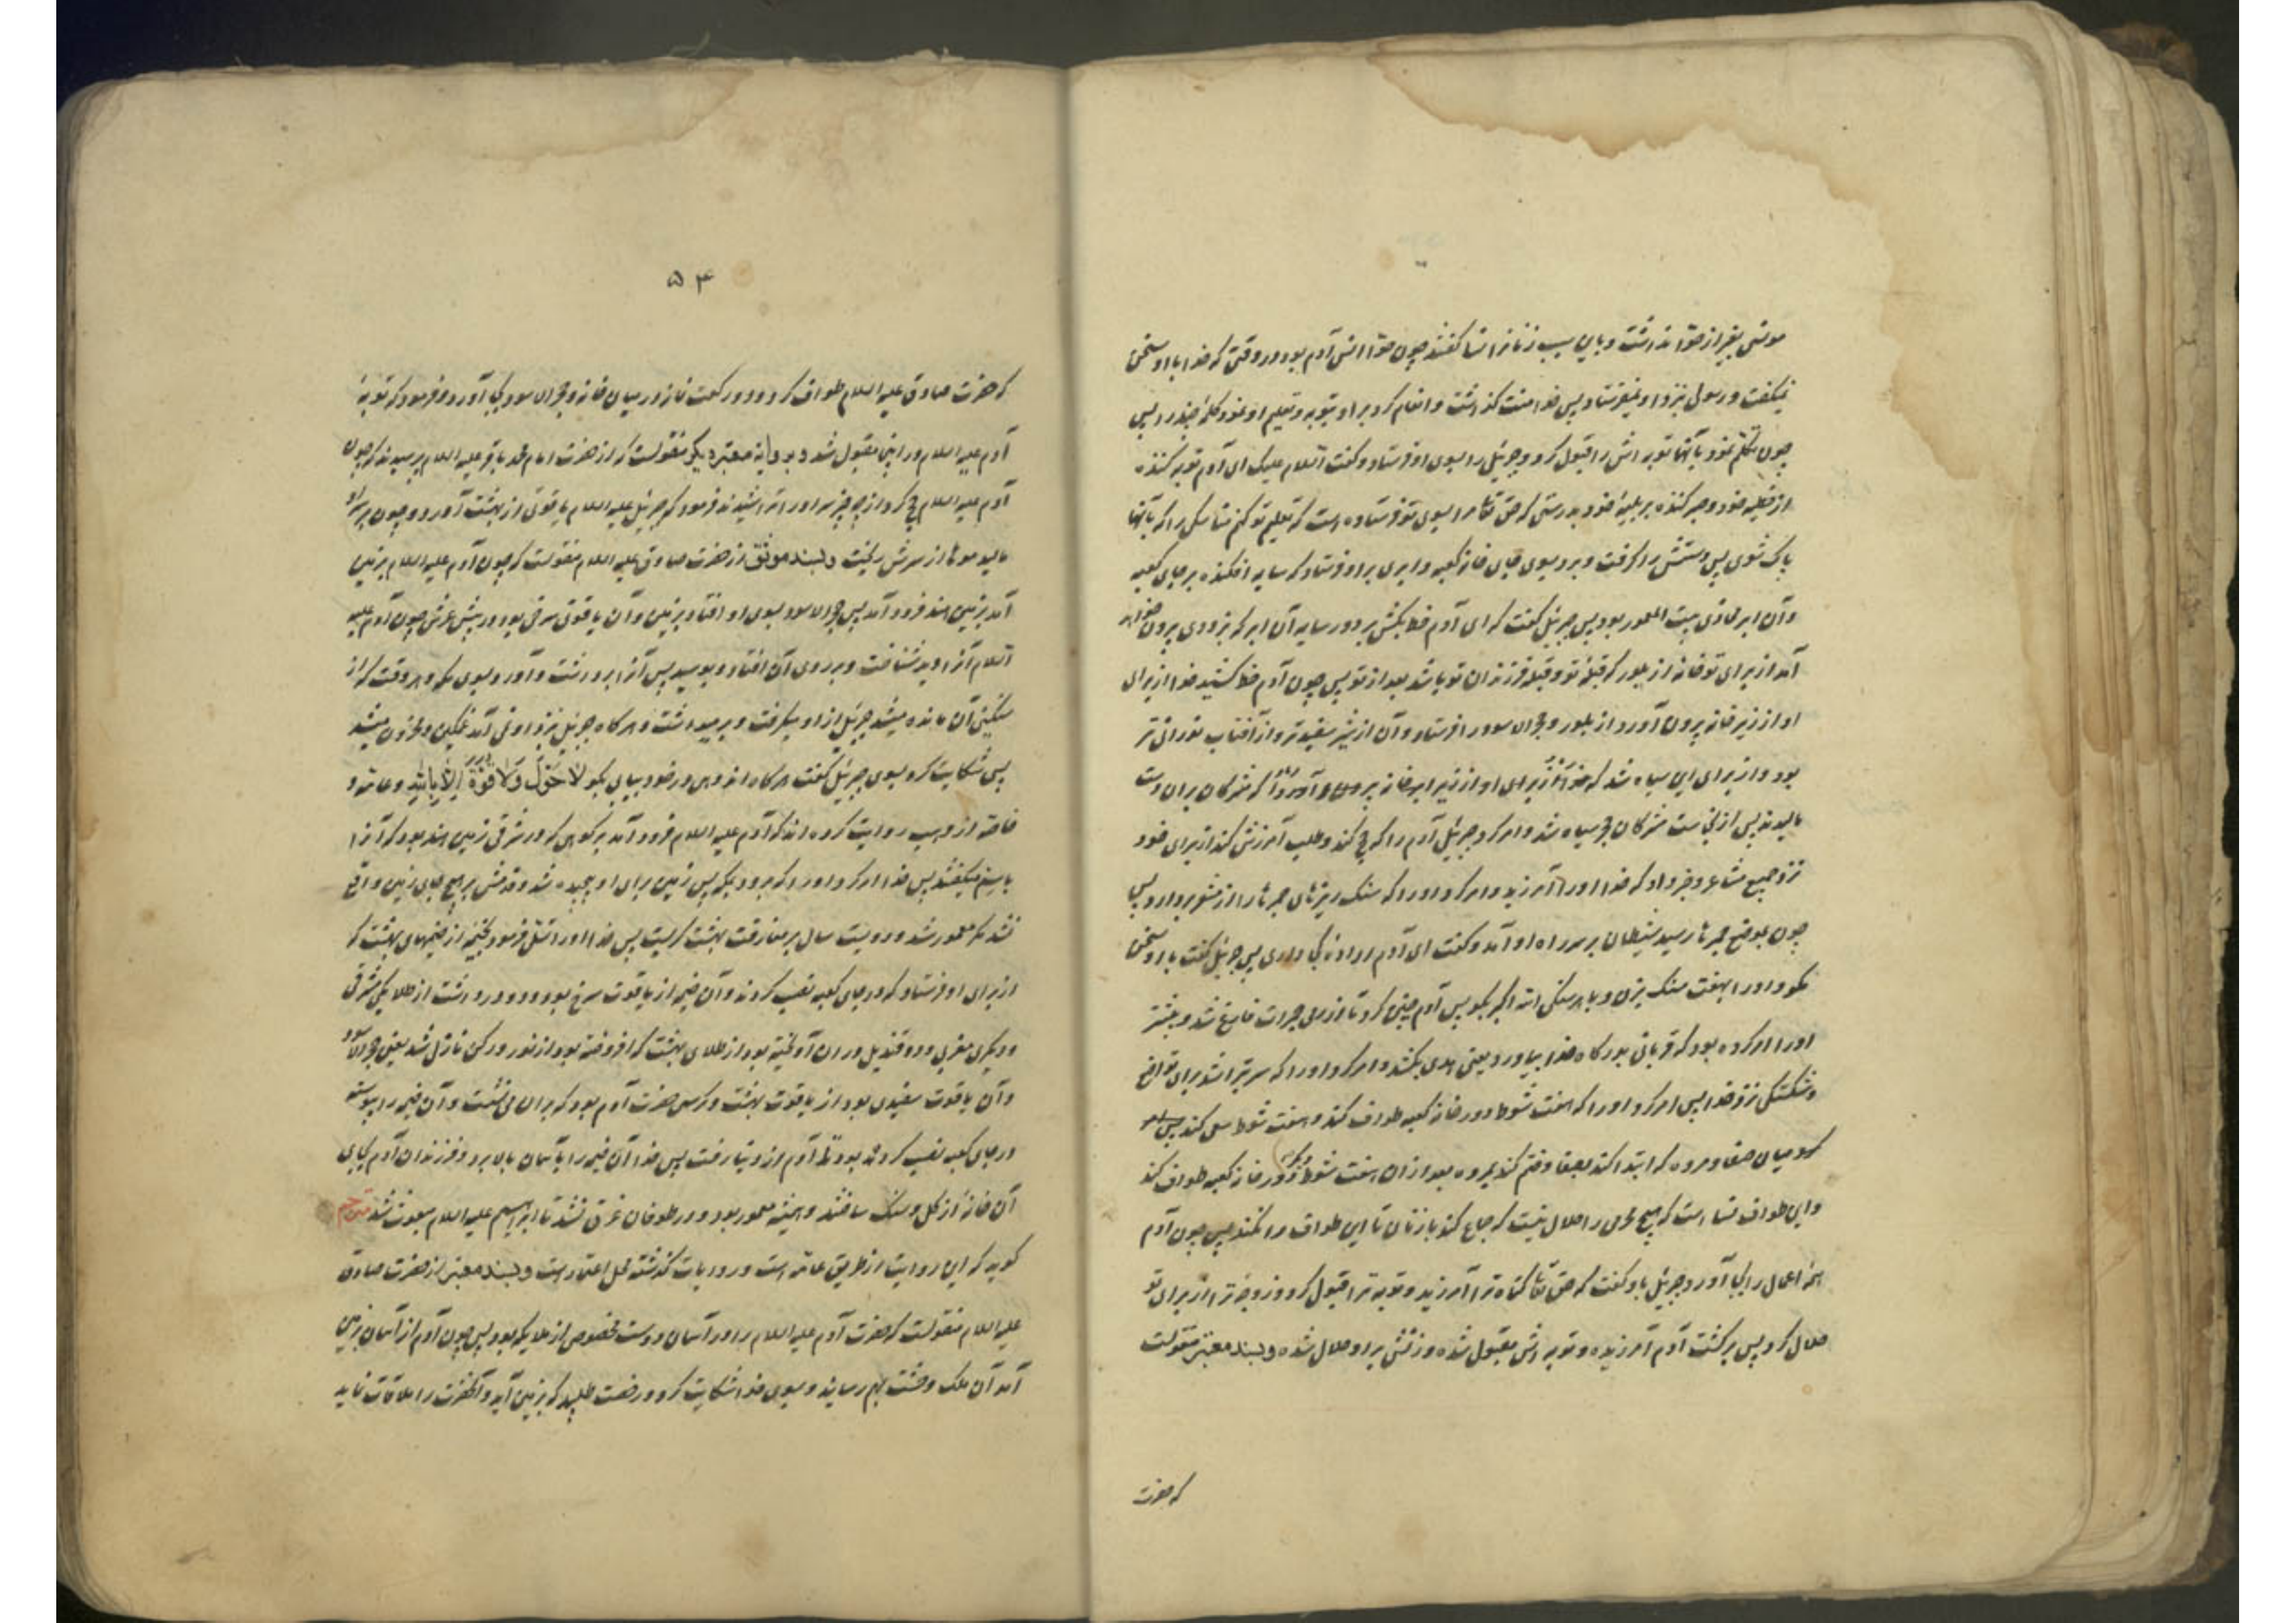 مونسی بغیر از حوّا نداشت و باین سبب زنانرا نسا گفتند چون حوّا انس آدم بود در وقتی که خدا با او سخن
نیکفت و رسولی بنزد او نمیفرستاد پس خدا منت گذاشت و انعام کرد بر او بتوبه و تعلیم او نمود کلمهٔ چند را پس
چون تکلّم نمود بآنها توبه اش را قبول کرد و جبرئیل را بسوی او فرستاد و گفت السلام علیک ای آدم توبه کننده
از خطیئه خود و صبر کننده بر بلیهٔ خود بدرستی که حق تعا مرا بسوی تو فرستاده است که تعلیم تو کنم مناسکی را که بآنها
پاک شوی پس دستش را گرفت و برد بسوی جای خانه کعبه و ابری بر او فرستاد که سایه افکنده بر جای کعبه
و آن ابر محاذی بیت المعمور بود پس جبرئیل گفت که ای آدم خط بکش بر دور سایه آن ابر که بزودی بیرون خواهد
آمد از برای تو خانه از بلور که قبلهٔ تو و قبلهٔ فرزندان تو باشد بعد از تو پس چون آدم خط کشید خدا از برای
او از زیر خانه بیرون آورد از بلور و حجرالاسود را فرستاد و آن از شیر سفیدتر و از آفتاب نورانی تر
بود و از برای این سیاه شد که مشرکان بر آن دست
مالیدند پس از نجاست مشرکان حجر سیاه شد و امر کرد جبرئیل آدم را که حج کند و طلب آمرزش کند از برای خود
نزد جمیع مشاعر و خبر داد که خدا او را آمرزید و امر کرد او را که سنگ ریزهای جمرها را از مشعر بردارد پس
چون بموضع جمرها رسید شیطان بر سر راه او آمد و گفت ای آدم اراده کجا داری پس جبرئیل گفت با او سخن
مگو و او را بهفت سنگ بزن و با هر سنگی الله اکبر بگو پس آدم چنین کرد تا از رمی جمرات فارغ شد و پیشتر
او را امر کرده بود که قربانی بدرگاه خدا بیاورد یعنی هدی بکشد و امر کرد او را که سر بتراشد برای تواضع
و شکستگی نزد خدا پس امر کرد او را که هفت شوط دور خانه کعبه طواف کند و هفت شوط سعی کند
میان صفا و مروه که ابتدا کند بصفا و ختم کند بمروه بعد از آن هفت شوط دیگر بر دور خانه کعبه طواف کند
و این طواف نسا است که هیچ محرمی را حلال نیست که جماع کند با زنان تا این طواف را نکند پس چون آدم
همهٔ اعمال را بجا آورد جبرئیل باو گفت که حق تعا گناه ترا آمرزید و توبه ترا قبول کرد و زوجه ترا از برای تو
حلال کرد پس برگشت آدم آمرزیده و توبه اش مقبول شده و زنش بر او حلال شده و بسند معتبر منقولست
که حضرت
۵۴
که حضرت صادق علیه السلام طواف کرد و دو رکعت نماز در میان خانه و حجرالاسود بجا آورد و فرمود که توبهٔ
آدم علیه السلام در اینجا مقبول شد و بروایة معتبر دیگر منقولست که از حضرت امام محمد باقر علیه السلام پرسیدند که چون
آدم علیه السلام حج کرد از چه چیز سر او را تراشیدند فرمود که جبرئیل علیه السلام یاقوتی از بهشت آورد و چون بر سر او
مالید موها از سرش ریخت و بسند موثق از حضرت صادق علیه السلام منقولست که چون آدم علیه السلام بزمین
آمد بزمین هند فرود آمد پس حجرالاسود بسوی او افتاد بزمین و آن یاقوتی سرخی بود در پیش عرش چون آدم علیه
السلام آنرا دید شناخت و بر روی آن افتاد و بوسید پس آنرا برداشت و آورد بسوی مکه و هر وقت که از
سنگینی آن مانده میشد جبرئیل از او میگرفت و برمیداشت و هر گاه جبرئیل بنزد او نمی آمد غمگین و محزون میشد
پس شکایت کرد بسوی جبرئیل گفت هر گاه اندوهی در خود بیابی بگو لا حَوْلَ وَلا قُوَّةَ إِلّا بِاللهِ و عامه و
خاصه از وهب روایت کرده اند که آدم علیه السلام فرود آمد بر کوهی که در شرقی زمین هند بود که آنرا
باسم میگفتند پس خدا امر کرد او را که برود بمکه پس زمین برای او پیچیده شد و قدمش بر هیچ جای زمین واقع
نشد مگر معمور شد و دویست سال بر مفارقت بهشت گریست پس خدا او را تسلی فرمود بخیمه از خیمهای بهشت که
از برای او فرستاد که در جای کعبه نصب کردند و آن خیمه از یاقوت سرخ بود و دو در داشت از طلا یکی شرقی
و دیگری مغربی و دو قندیل در آن آویخته بود از طلای بهشت که افروخته بود از نور و رکن نازل شد یعنی حجرالاسود
و آن یاقوت سفیدی بود از یاقوت بهشت و کرسی حضرت آدم بود که بر آن می نشست و آن خیمه را پیوسته
در جای کعبه نصب کرده بودند تا آدم از دنیا رفت پس خدا آن خیمه را بآسمان بالا برد و فرزندان آدم بجای
آن خانه از گل و سنگ ساختند و همیشه معمور بود و در طوفان غرق نشد تا ابراهیم علیه السلام مبعوث شد مترجم
گوید که این روایت از طریق عامه است و روایات گذشته محل اعتماد است و بسند معتبر از حضرت صادق
علیه السلام منقولست که حضرت آدم علیه السلام را در آسمان دوست مخصوصی از ملایکه بود پس چون آدم از آسمان بزمین
آمد آن ملک وحشت بهم رسانید و بسوی خدا شکایت کرد و رخصت طلبید که بزمین آید و آنحضرت را ملاقات نماید